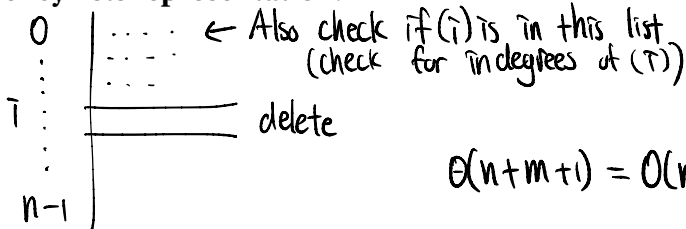 0 .... ← Also check if (i) is in this list
(check for indegrees of (i))
i delete
Θ(n+m+1) = O(
n-1